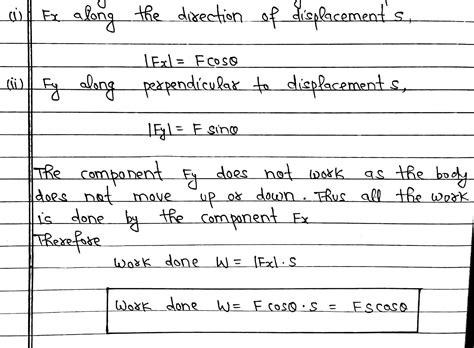 (i) Fx along the direction of displacement s,
|Fx| = F cosθ
(ii) Fy along perpendicular to displacement s,
|Fy| = F sinθ
The component Fy does not work as the body
does not move up or down. Thus all the work
is done by the component Fx
Therefore
Work done W = |Fx|. s
Work done W = F cosθ . s = F s cosθ